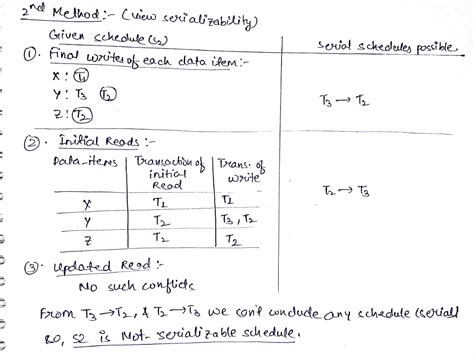 2nd Method:- (view serializability)
Given schedule (S2)
serial schedules possible
①. Final writes of each data item:-
X: T1
Y: T3 T2
Z: T2
T3 → T2
②. Initial Reads :-
Data-items | Transaction of initial Read | Trans. of write
X | T1 | T1
Y | T2 | T3, T2
Z | T2 | T2
T2 → T3
③. Updated Read :-
No such conflicts
From T3 → T2, & T2 → T3 we can't conclude any schedule (serial)
so, S2 is Not-serializable schedule.